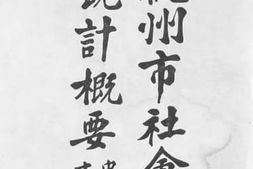 州市社會
統計概要